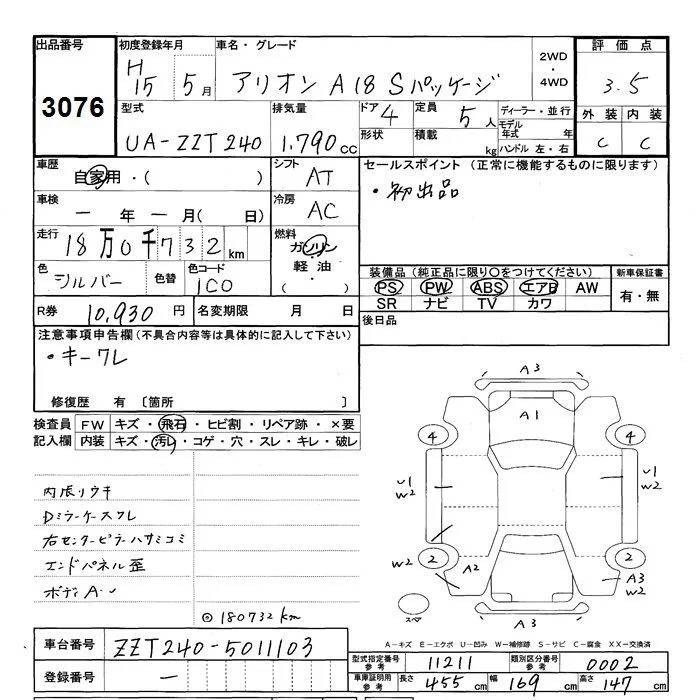 出品番号 初度登録年月 車名・グレード 2WD・4WD 評価点
3076 H15 5月 アリオン A18 Sパッケージ 3.5
型式 排気量 ドア 4 定員 5人 ディーラー・並行 外装 内装
UA-ZZT240 1.790cc 形状 積載 kg モデル年式 年 ハンドル 左・右 C C
車歴 自家用・( ) シフト AT セールスポイント (正常に機能するものに限ります)
・初出品
車検 ー年ー月( 日) 冷房 AC
走行 18万0千732km 燃料 ガソリン・軽油・
色 シルバー 色替 色コード 1C0 装備品 (純正品に限り〇をつけてください) 新車保証書
PS PW ABS エアB AW 有・無
SR ナビ TV カワ
R券 10,930円 名変期限 月 日 後日品
注意事項申告欄 (不具合内容等は具体的に記入して下さい)
・キーワレ
修復歴 有 〔箇所 〕
検査員 FW キズ・飛石・ヒビ割・リペア跡・×要
記入欄 内装 キズ・汚レ・コゲ・穴・スレ・キレ・破レ
内張リウキ
Dミラーケースワレ
右センターピラーハサミコミ
エンドパネル歪
ボディA
◎180732km
A3
A1
4 4
U1 W2 U1 W2
W2 2 A2 2 A3 W2
スペア
A3
A-キズ E-エクボ U-凹み W-補修跡 S-サビ C-腐食 XX-交換済
車台番号 ZZT240-5011103
登録番号 ー
型式指定番号 参考 11211 類別区分番号 参考 0002
車庫証明用 参考 長さ 455cm 幅 169cm 高さ 147cm